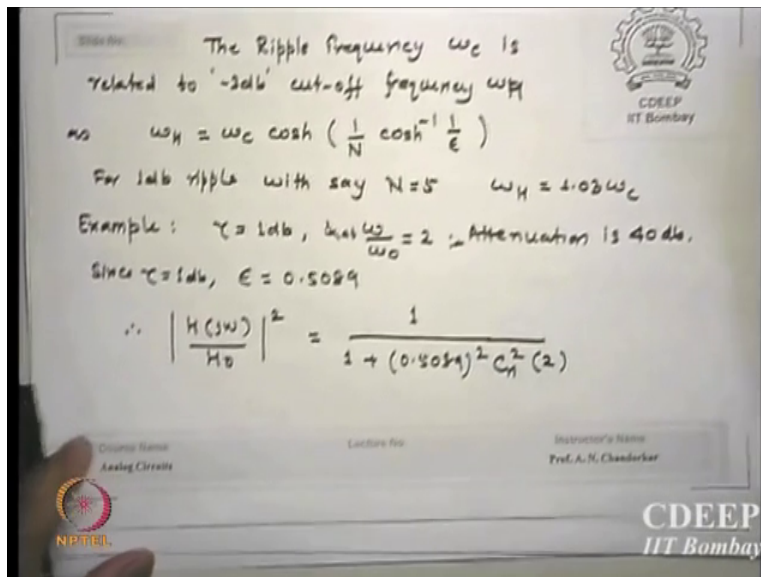 Slide No.
The Ripple frequency ωc is
related to '-3db' cut-off frequency ωH
as ωH = ωc cosh ( 1/N cosh⁻¹ 1/ε )
For 1db ripple with say N=5 ωH = 1.03ωc
Example : r = 1db, ω/ω0 = 2 :- Attenuation is 40 db.
Since r = 1db, ε = 0.5089
∴ | H(jω) / H0 |² = 1 / 1 + (0.5089)² Cn² (2)
CDEEP
IIT Bombay
Course Name
Analog Circuits
Lecture No
Instructor's Name
Prof. A. N. Chandorkar
NPTEL
CDEEP
IIT Bombay